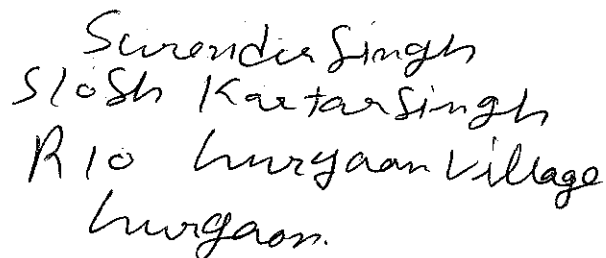 Surender Singh
S/o Sh Kartar Singh
R/o Gurgaon Village
Gurgaon.